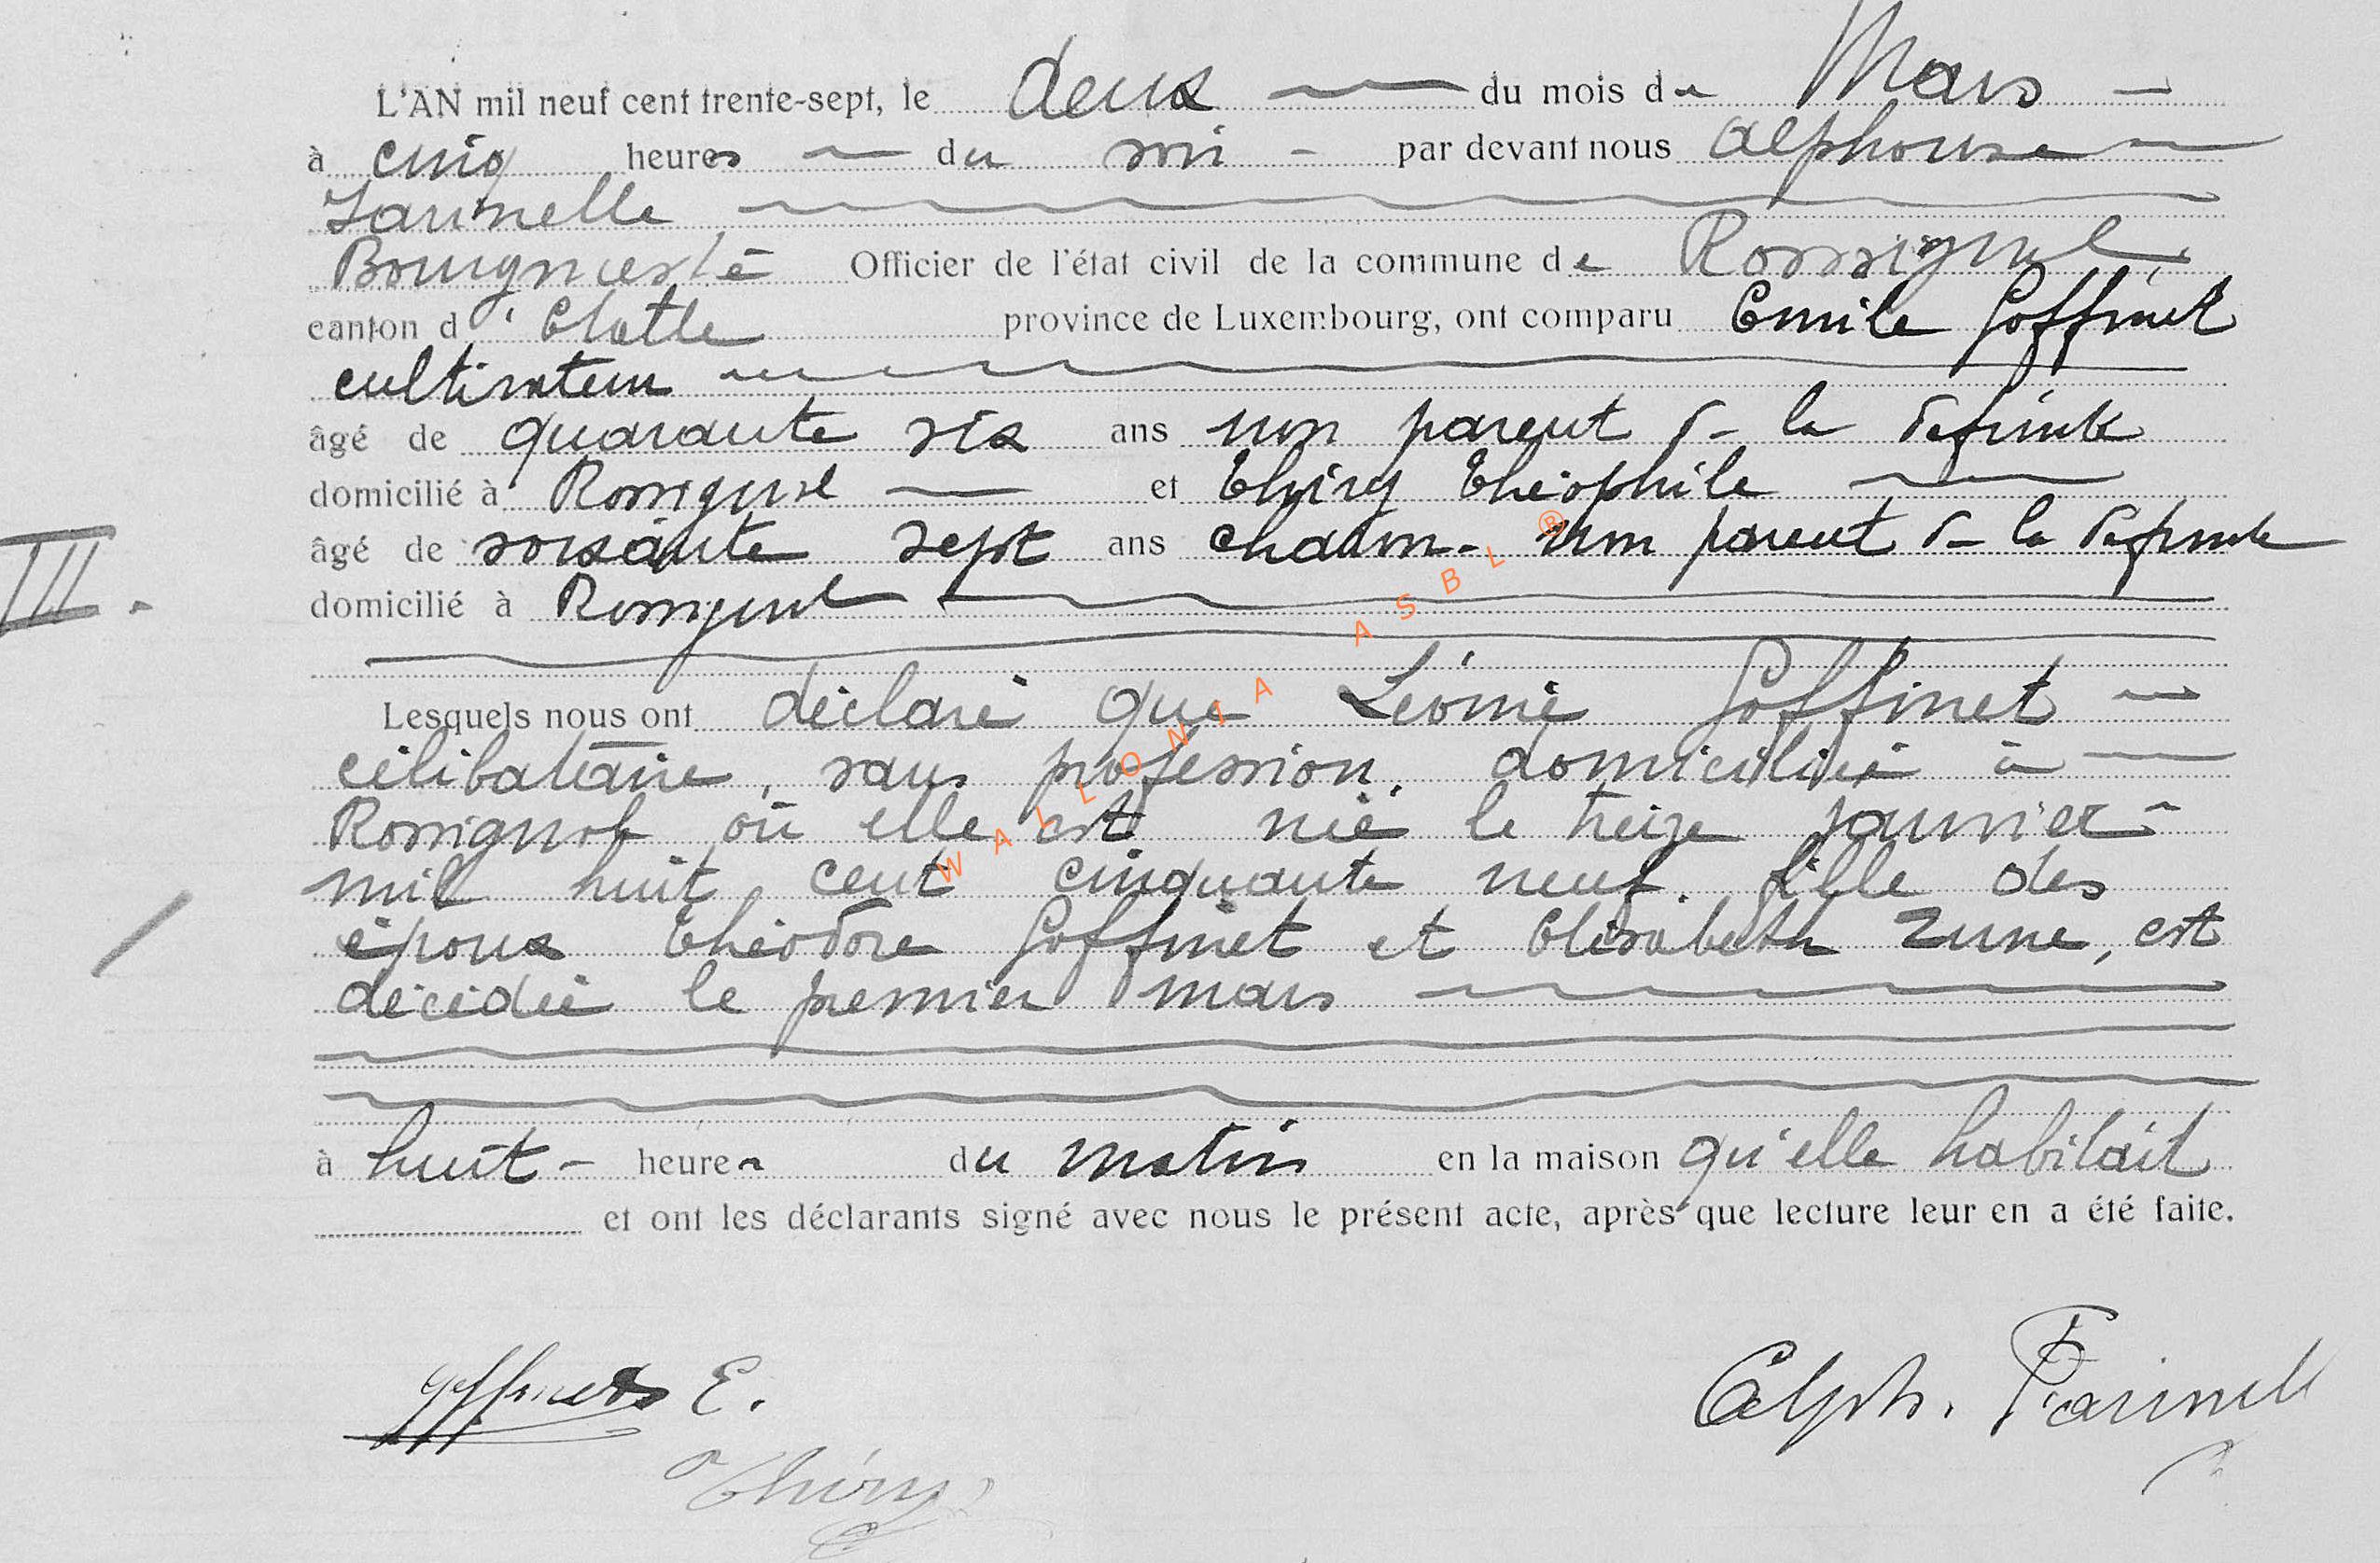 L'AN mil neuf cent trente-sept, le deux du mois de Mars
à cinq heures du soir par devant nous Alphonse
Farinelle
Bourgmestre Officier de l'état civil de la commune de Rossignol,
canton d'Etalle province de Luxembourg, ont comparu Emile Goffinet
cultivateur
âgé de quarante six ans non parent de la défunte
domicilié à Rossignol et Thiry Théophile
III.
âgé de soixante sept ans non parent de la défunte
domicilié à Rossignol
Lesquels nous ont déclaré que Léonie Goffinet
célibataire, sans profession, domiciliée à
Rossignol où elle est née le treize janvier
mil huit cent cinquante neuf, fille des
époux Théodore Goffinet et Elisabeth Zune, est
décédée le premier mars
à huit heures du matin en la maison qu'elle habitait
et ont les déclarants signé avec nous le présent acte, après que lecture leur en a été faite.
Goffinet E.
Alph. Farinelle
Thiry
WALLONIA ASBL ®